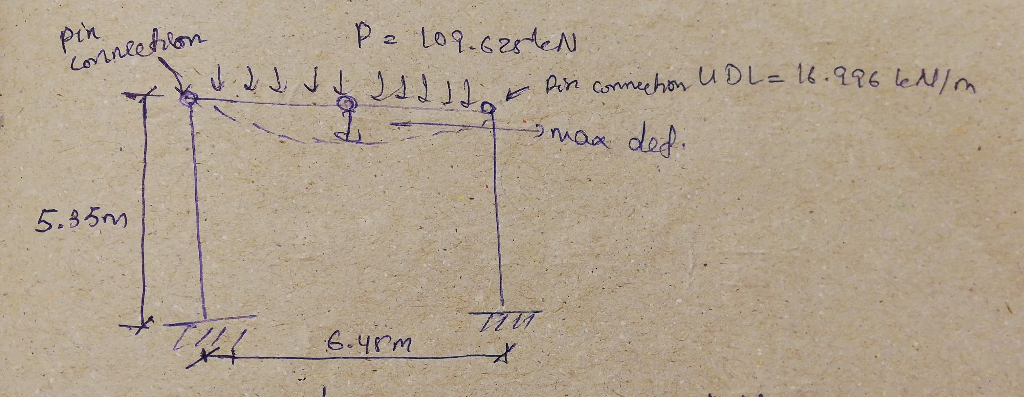 Pin
connection
P = 109.625 kN
Pin connection UDL = 16.996 kN/m
max def.
5.35m
6.48m